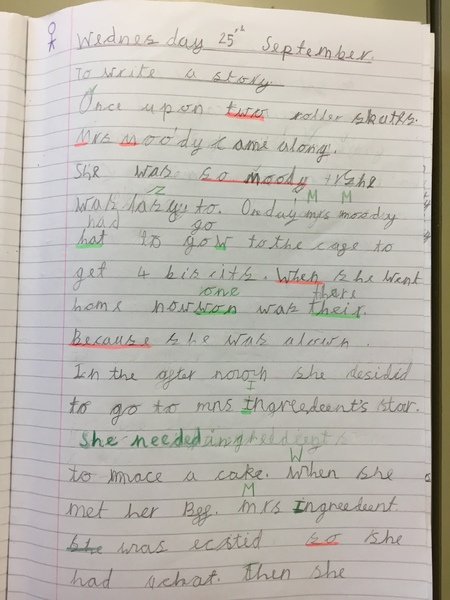 Wednesday 25th September.
To write a story
Once upon two roller skaths.
Mrs moody came along.
She was so moody she
z M M
was lasy to. On day mrs moody
had go
hat to gow to the cage to
get 4 biscits. When she went
one there
home nowson was their.
Because she was alown.
In the after noon she desidid
I
to go to mrs Ingreedeent's stor.
She needed ingreedeents
W
to mace a cake. When she
M
met her Bff. mrs Ingreedeent
she was ecstid so she
had a chat. Then she